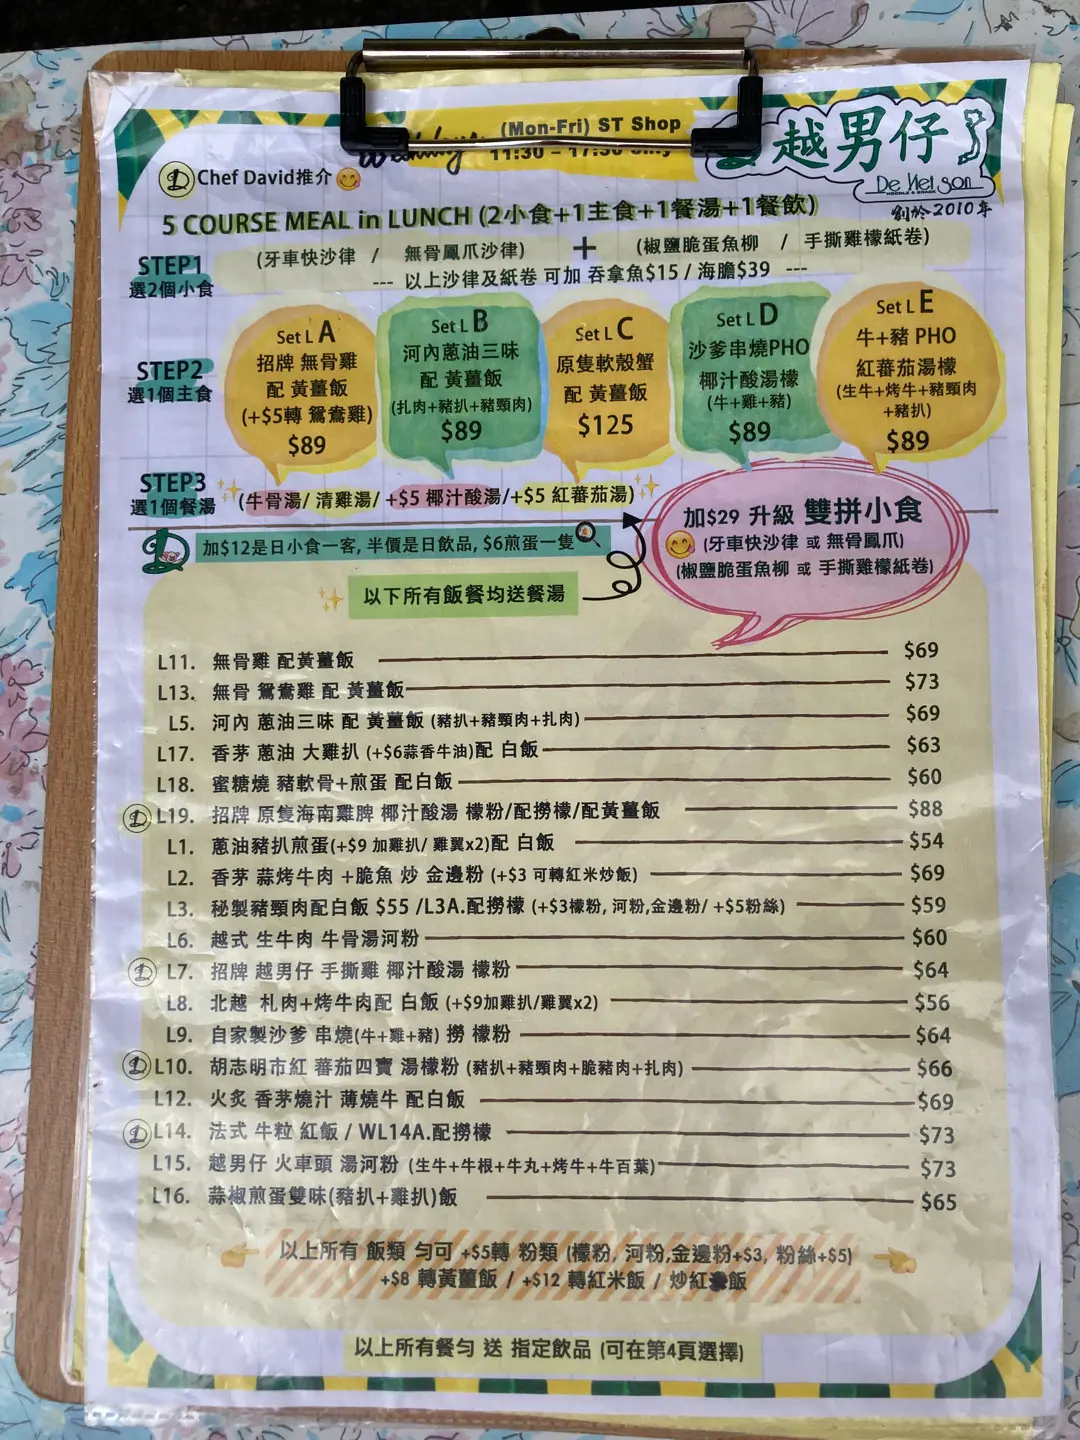 (Mon-Fri) ST Shop
11:30 – 17:30 only
越男仔
De Nei Son
NOODLE & SNACK
創於2010年
Chef David推介
5 COURSE MEAL in LUNCH (2小食+1主食+1餐湯+1餐飲)
STEP1
選2個小食
(牙車快沙律 / 無骨鳳爪沙律) + (椒鹽脆蛋魚柳 / 手撕雞檬紙卷)
--- 以上沙律及紙卷 可加 吞拿魚$15 / 海膽$39 ---
STEP2
選1個主食
Set L A
招牌 無骨雞
配 黃薑飯
(+$5轉 鴛鴦雞)
$89
Set L B
河內蔥油三味
配 黃薑飯
(扎肉+豬扒+豬頸肉)
$89
Set L C
原隻軟殼蟹
配 黃薑飯
$125
Set L D
沙爹串燒PHO
椰汁酸湯檬
(牛+雞+豬)
$89
Set L E
牛+豬 PHO
紅蕃茄湯檬
(生牛+烤牛+豬頸肉
+豬扒)
$89
STEP3
選1個餐湯
(牛骨湯/ 清雞湯/ +$5 椰汁酸湯/+$5 紅蕃茄湯)
加$12是日小食一客, 半價是日飲品, $6煎蛋一隻
加$29 升級 雙拼小食
(牙車快沙律 或 無骨鳳爪)
(椒鹽脆蛋魚柳 或 手撕雞檬紙卷)
以下所有飯餐均送餐湯
L11. 無骨雞 配黃薑飯 $69
L13. 無骨 鴛鴦雞 配 黃薑飯 $73
L5. 河內 蔥油三味 配 黃薑飯 (豬扒+豬頸肉+扎肉) $69
L17. 香茅 蔥油 大雞扒 (+$6蒜香牛油)配 白飯 $63
L18. 蜜糖燒 豬軟骨+煎蛋 配白飯 $60
L19. 招牌 原隻海南雞脾 椰汁酸湯 檬粉/配撈檬/配黃薑飯 $88
L1. 蔥油豬扒煎蛋(+$9 加雞扒/ 雞翼x2)配 白飯 $54
L2. 香茅 蒜烤牛肉 +脆魚 炒 金邊粉 (+$3 可轉紅米炒飯) $69
L3. 秘製豬頸肉配白飯 $55 /L3A.配撈檬 (+$3檬粉, 河粉,金邊粉/ +$5粉絲) $59
L6. 越式 生牛肉 牛骨湯河粉 $60
L7. 招牌 越男仔 手撕雞 椰汁酸湯 檬粉 $64
L8. 北越 札肉+烤牛肉配 白飯 (+$9加雞扒/雞翼x2) $56
L9. 自家製沙爹 串燒(牛+雞+豬) 撈 檬粉 $64
L10. 胡志明市紅 蕃茄四寶 湯檬粉 (豬扒+豬頸肉+脆豬肉+扎肉) $66
L12. 火炙 香茅燒汁 薄燒牛 配白飯 $69
L14. 法式 牛粒 紅飯 / WL14A.配撈檬 $73
L15. 越男仔 火車頭 湯河粉 (生牛+牛根+牛丸+烤牛+牛百葉) $73
L16. 蒜椒煎蛋雙味(豬扒+雞扒)飯 $65
以上所有 飯類 勻可 +$5轉 粉類 (檬粉, 河粉,金邊粉+$3, 粉絲+$5)
+$8 轉黃薑飯 / +$12 轉紅米飯 / 炒紅飯
以上所有餐勻 送 指定飲品 (可在第4頁選擇)